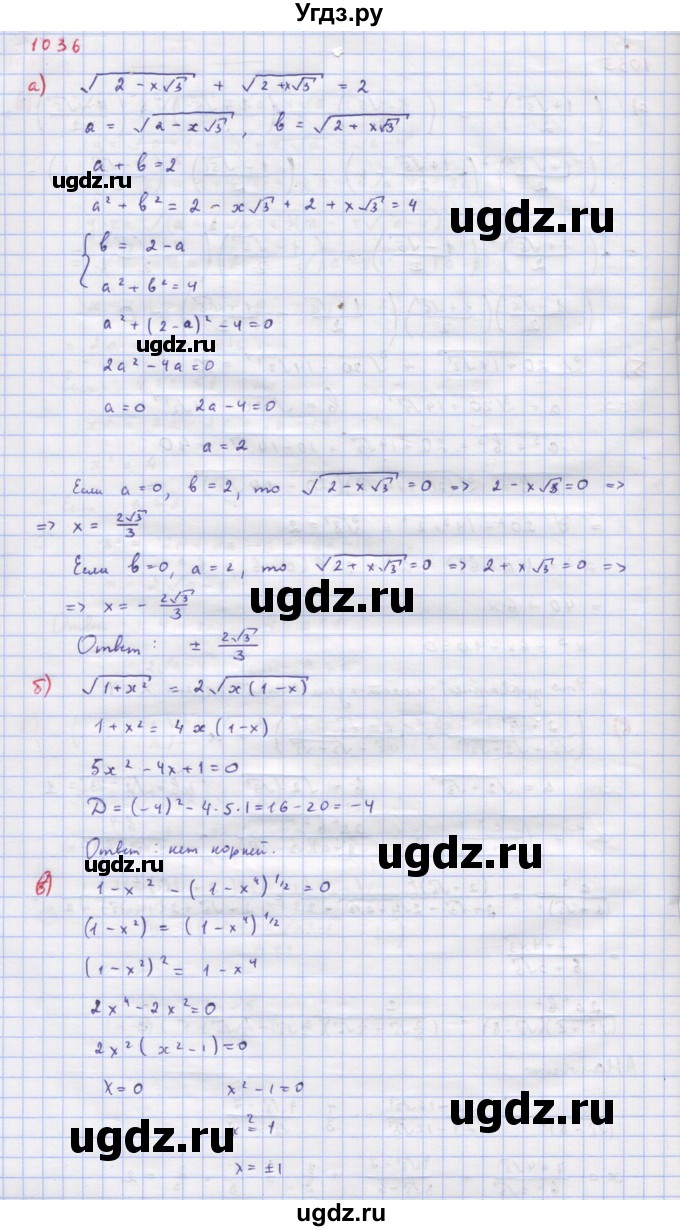 Угдз.ру
1036
а) √(2 - x√3) + √(2 + x√3) = 2
a = √(2 - x√3), b = √(2 + x√3)
a + b = 2
ugdz.ru
a² + b² = 2 - x√3 + 2 + x√3 = 4
ugdz.ru
{ b = 2 - a
a² + b² = 4
a² + (2 - a)² - 4 = 0
ugdz.ru
2a² - 4a = 0
a = 0 2a - 4 = 0
a = 2
Если a = 0, b = 2, то √(2 - x√3) = 0 => 2 - x√3 = 0 =>
=> x = 2√3/3
ugdz.ru
Если b = 0, a = 2, то √(2 + x√3) = 0 => 2 + x√3 = 0 =>
=> x = - 2√3/3
ugdz.ru
Ответ: ± 2√3/3
б) √(1 + x²) = 2√(x(1 - x))
1 + x² = 4x(1 - x)
5x² - 4x + 1 = 0
D = (-4)² - 4·5·1 = 16 - 20 = -4
Ответ: нет корней.
ugdz.ru
ugdz.ru
в) 1 - x² - (1 - x⁴)^1/2 = 0
(1 - x²) = (1 - x⁴)^1/2
(1 - x²)² = 1 - x⁴
2x⁴ - 2x² = 0
2x²(x² - 1) = 0
x = 0 x² - 1 = 0
ugdz.ru
x² = 1
ugdz.ru
x = ±1
ugdz.ru